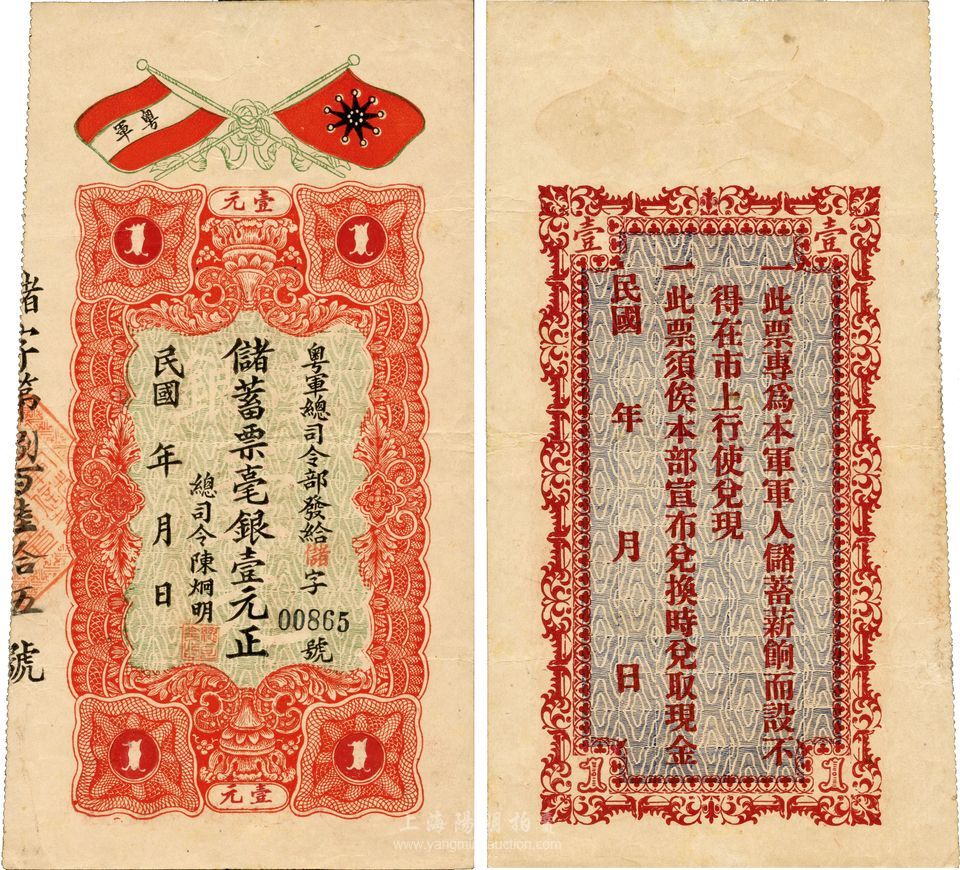 粵軍
壹元
1
1
粵軍總司令部發給儲字
00865
號
儲蓄票毫銀壹元正
總司令陳炯明
民國 年 月 日
儲字第捌百陸拾五號
1
1
壹元
壹
壹
一此票專為本軍軍人儲蓄薪餉而設不
得在市上行使兌現
一此票須俟本部宣布兌換時兌取現金
民國 年 月 日
1
1
上海陽明拍賣
www.yangmingauction.com